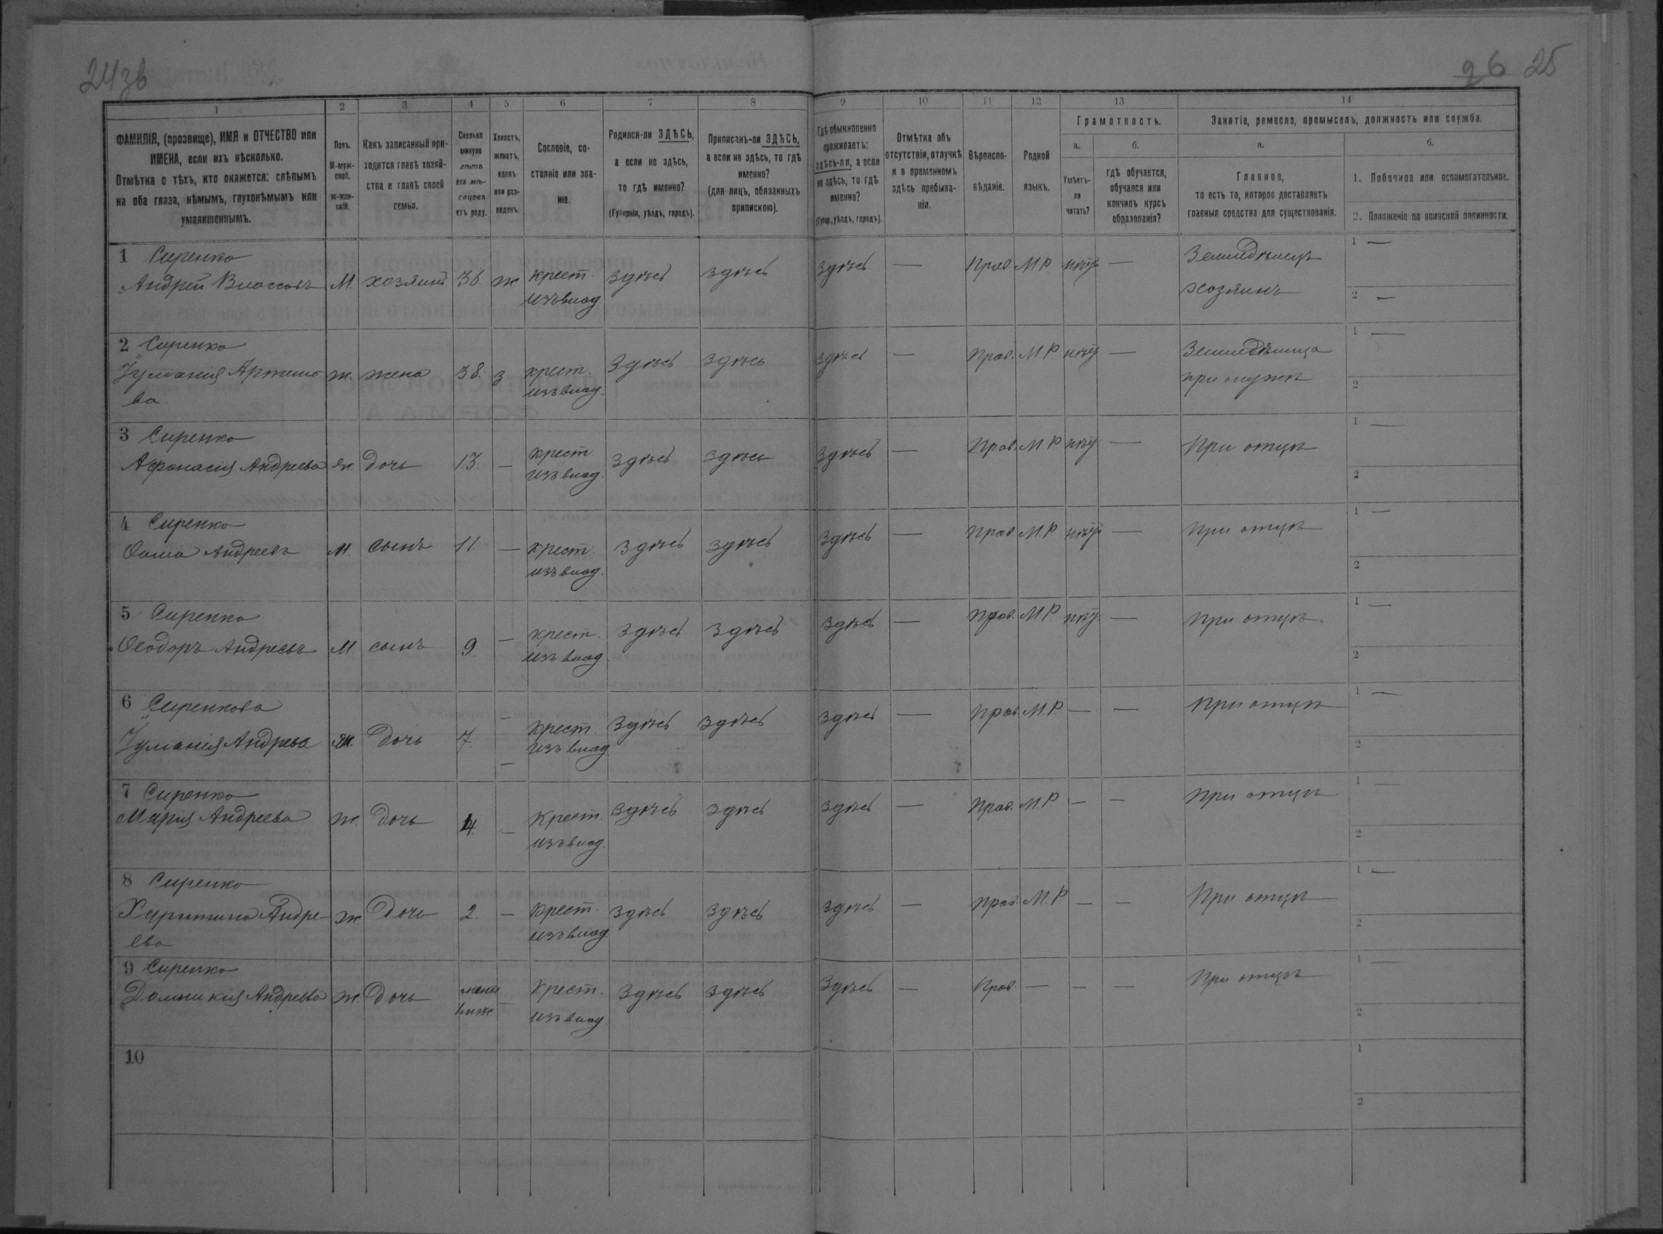 24зв
26 25
1 2 3 4 5 6 7 8 9 10 11 12 13 14
ФАМИЛІЯ, (прозвище), ИМЯ и ОТЧЕСТВО или
ИМЕНА, если ихъ нѣсколько.
Отмѣтка о тѣхъ, кто окажется: слѣпымъ
на оба глаза, нѣмымъ, глухонѣмымъ или
умалишеннымъ.
Полъ.
М-муж-
ской.
ж-жен-
скій.
Какъ записанный при-
ходится главѣ хозяй-
ства и главѣ своей
семьи.
Сколько
минуло
лѣтъ
или мѣ-
сяцевъ
отъ роду.
Холостъ,
женатъ,
вдовъ
или раз-
веденъ.
Сословіе, со-
стояніе или зва-
ніе.
Родился-ли ЗДѢСЬ,
а если не здѣсь,
то гдѣ именно?
(Губернія, уѣздъ, городъ).
Приписанъ-ли ЗДѢСЬ,
а если не здѣсь, то гдѣ
именно?
(для лицъ, обязанныхъ
припискою).
Гдѣ обыкновенно
проживаетъ:
здѣсь-ли, а если
не здѣсь, то гдѣ
именно?
(Губер., уѣздъ, городъ).
Отмѣтка объ
отсутствіи, отлучкѣ
и о временномъ
здѣсь пребыва-
ніи.
Вѣроиспо-
вѣданіе.
Родной
языкъ.
Грамотность.
а.
Умѣетъ-
ли
читать?
б.
гдѣ обучается,
обучался или
кончилъ курсъ
образованія?
Занятіе, ремесло, промыселъ, должность или служба.
а.
Главное,
то есть то, которое доставляетъ
главныя средства для существованія.
б.
1. Побочное или вспомогательное.
2. Положеніе по воинской повинности.
1 Сиренко
Андрей Власовъ М. хозяинъ 38 ж крест. здѣсь здѣсь здѣсь — Прав. М.Р. нѣтъ — Земледѣлецъ 1 —
изъ влад. хозяинъ 2 —
2 Сиренко
Артемо ж. жена 38 з крест. здѣсь здѣсь здѣсь — Прав. М.Р. нѣтъ — 1 —
ва изъ влад. при мужѣ 2
3 Сиренко
Афанасія Андреева ж. дочь 13 — крест здѣсь здѣсь здѣсь — Прав. М.Р. нѣтъ — При отцѣ 1 —
изъ влад. 2
4 Сиренко
Ѳома Андреевъ М. сынъ 11 — крест здѣсь здѣсь здѣсь — Прав. М.Р. нѣтъ — При отцѣ 1 —
изъ влад. 2
5 Сиренко
Ѳеодоръ Андреевъ М сынъ 9 — крест. здѣсь здѣсь здѣсь — Прав. М.Р. нѣтъ — При отцѣ 1 —
изъ влад. 2
6 Сиренкова
Андреева ж. дочь 7 — крест. здѣсь здѣсь здѣсь — Прав. М.Р. — — При отцѣ 1 —
изъ влад — 2
7 Сиренко
Марія Андреева ж. дочь 4 — крест. здѣсь здѣсь здѣсь — Прав. М.Р. — — При отцѣ 1 —
изъ влад. 2
8 Сиренко
Харитина Андре- ж. дочь 2 — крест. здѣсь здѣсь здѣсь — Прав. М.Р. — — При отцѣ 1 —
ева изъ влад 2
9 Сиренко
Домникія Андреева ж. дочь — крест. здѣсь здѣсь здѣсь — Прав. — — — При отцѣ 1 —
изъ влад. 2
10 1
2